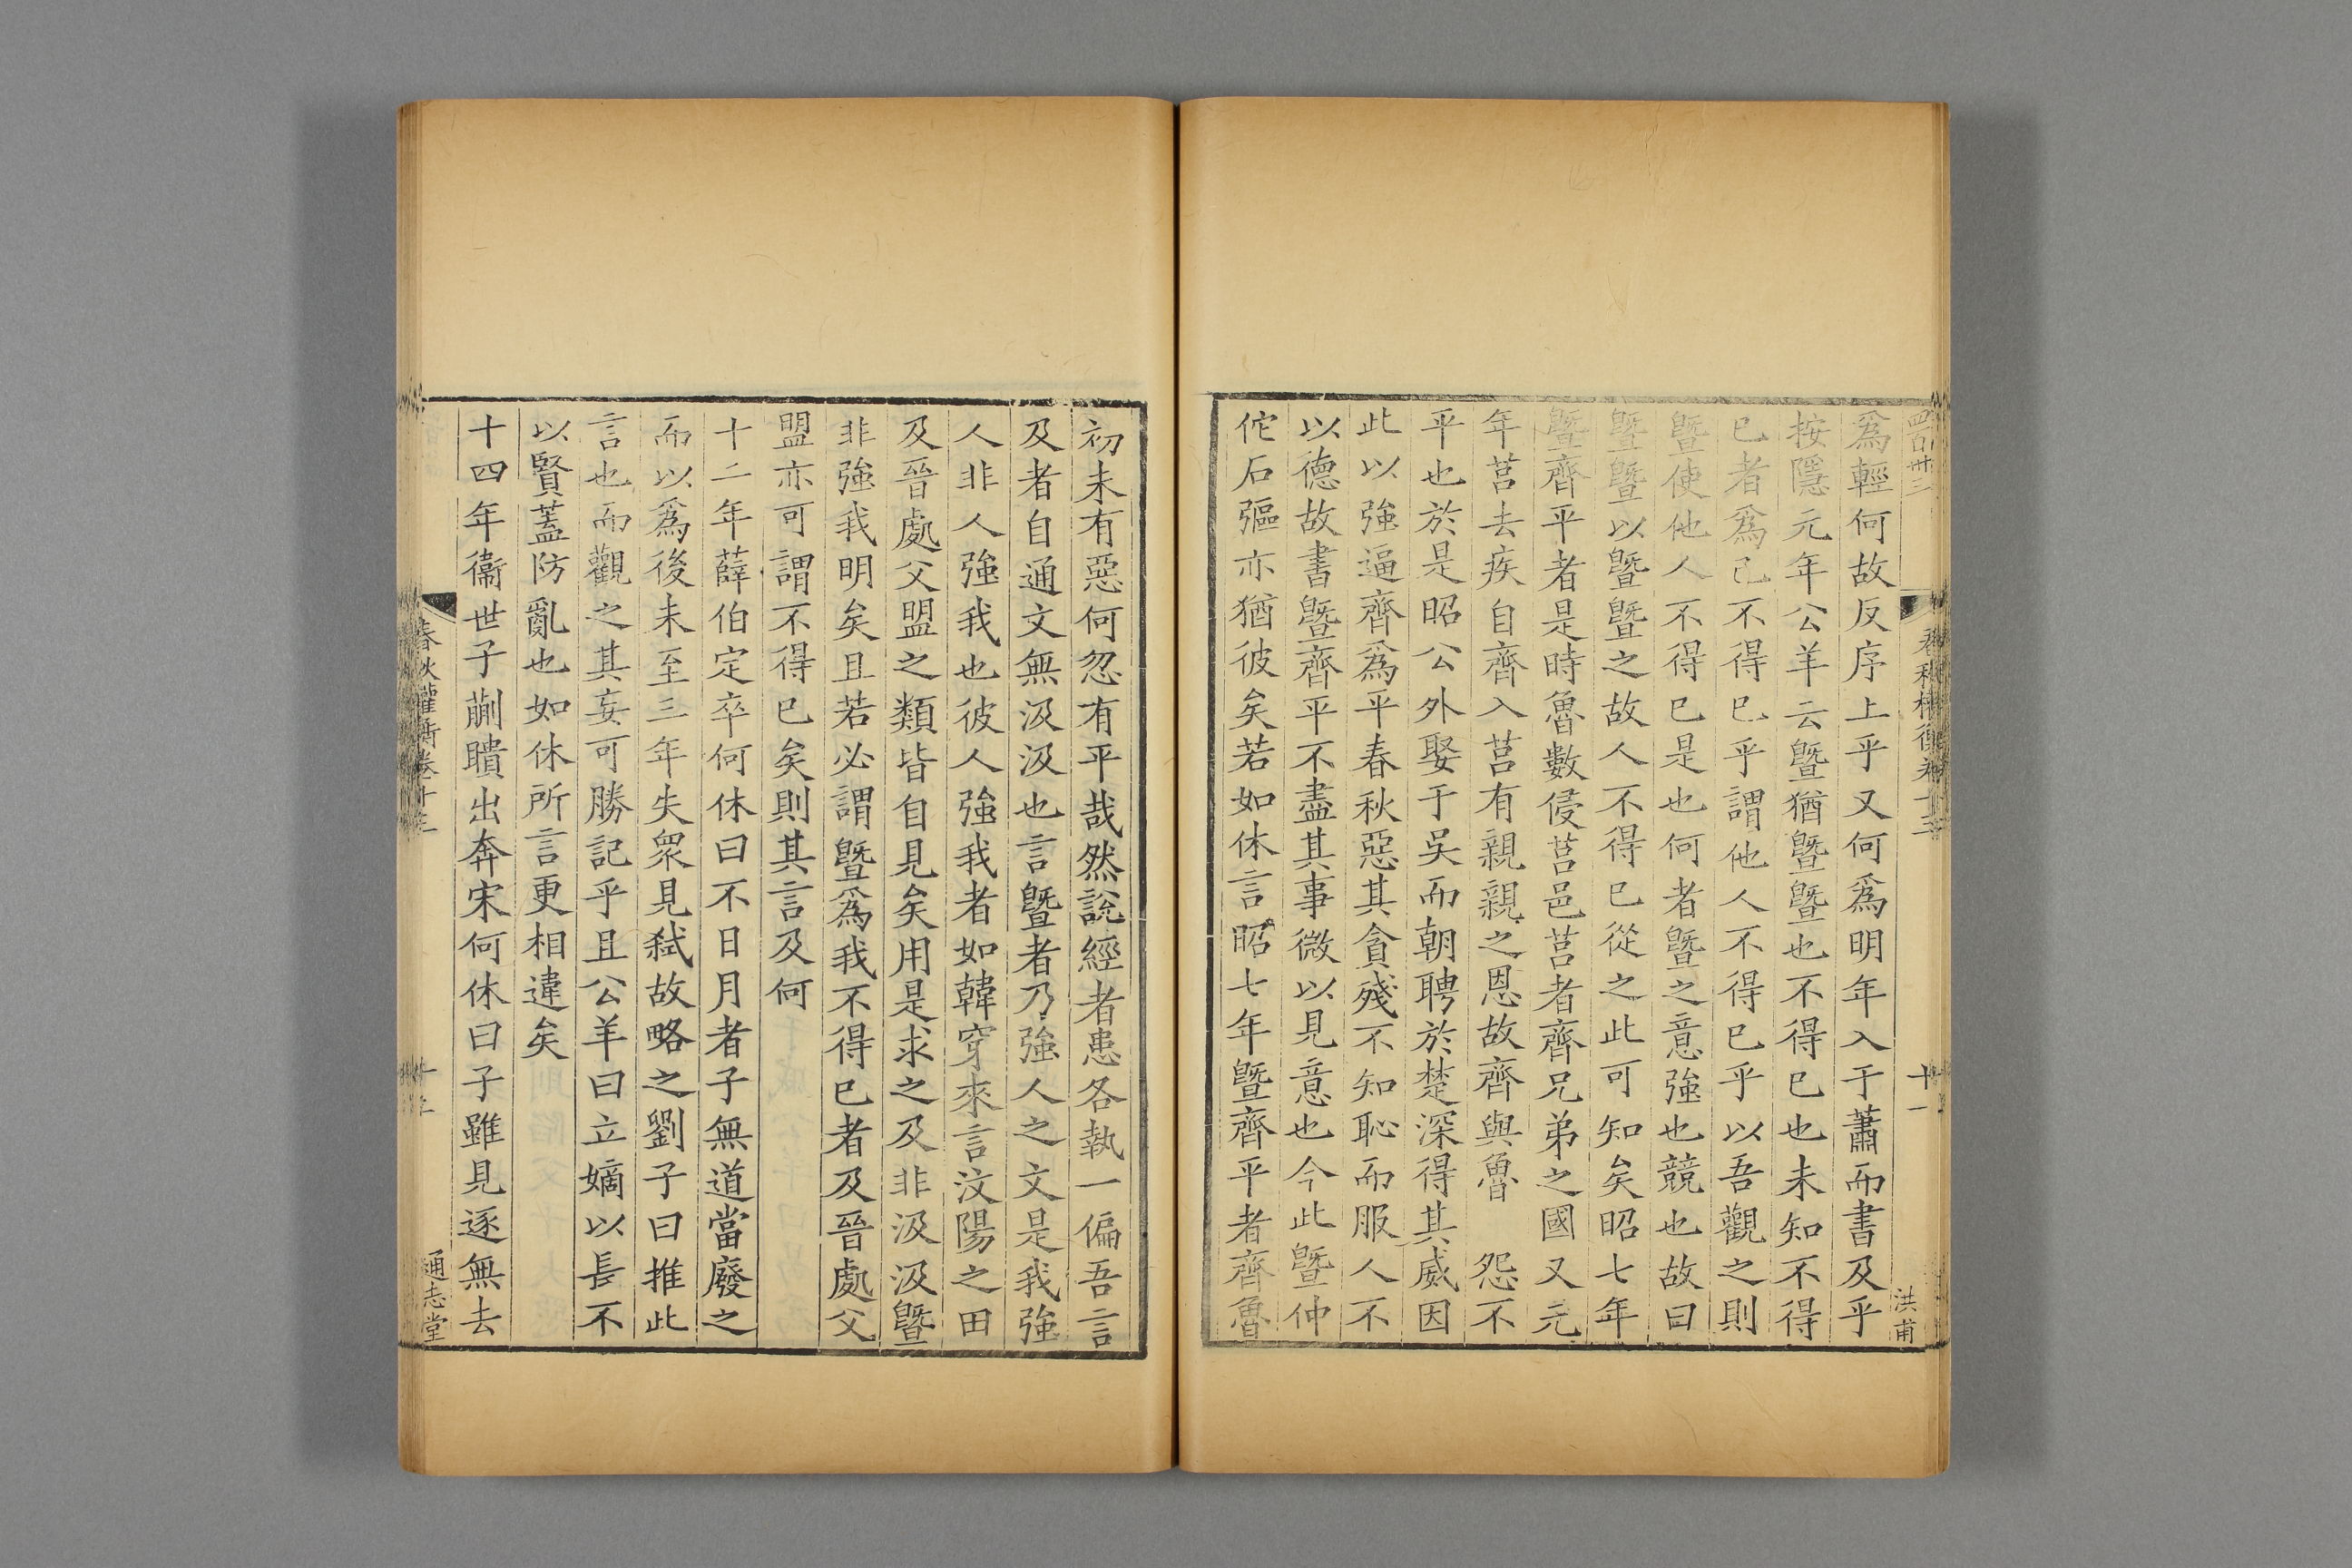 四百卅三
春秋權衡卷十三
十一
洪甫
爲輕何故反序上乎又何爲明年入于蕭而書及乎
按隱元年公羊云曁猶曁曁也不得已也未知不得
已者爲己不得已乎謂他人不得已乎以吾觀之則
曁使他人不得已是也何者曁之意強也競也故曰
曁曁以曁曁之故人不得已從之此可知矣昭七年
曁齊平者是時魯數侵莒邑莒者齊兄弟之國又元
年莒去疾自齊入莒有親親之恩故齊與魯 怨不
平也於是昭公外娶于吳而朝聘於楚深得其威因
此以強逼齊爲平春秋惡其貪殘不知恥而服人不
以德故書曁齊平不盡其事微以見意也今此曁仲
佗石彄亦猶彼矣若如休言昭七年曁齊平者齊魯
初未有惡何忽有平哉然說經者患各執一偏吾言
及者自通文無汲汲也言曁者乃強人之文是我強
人非人強我也彼人強我者如韓穿來言汶陽之田
及晉處父盟之類皆自見矣用是求之及非汲汲曁
非強我明矣且若必謂曁爲我不得已者及晉處父
盟亦可謂不得已矣則其言及何
十二年薛伯定卒何休曰不日月者子無道當廢之
而以爲後未至三年失衆見弒故略之劉子曰推此
言也而觀之其妄可勝記乎且公羊曰立嫡以長不
以賢蓋防亂也如休所言更相違矣
十四年衞世子蒯聵出奔宋何休曰子雖見逐無去
春秋權衡卷十三
通志堂